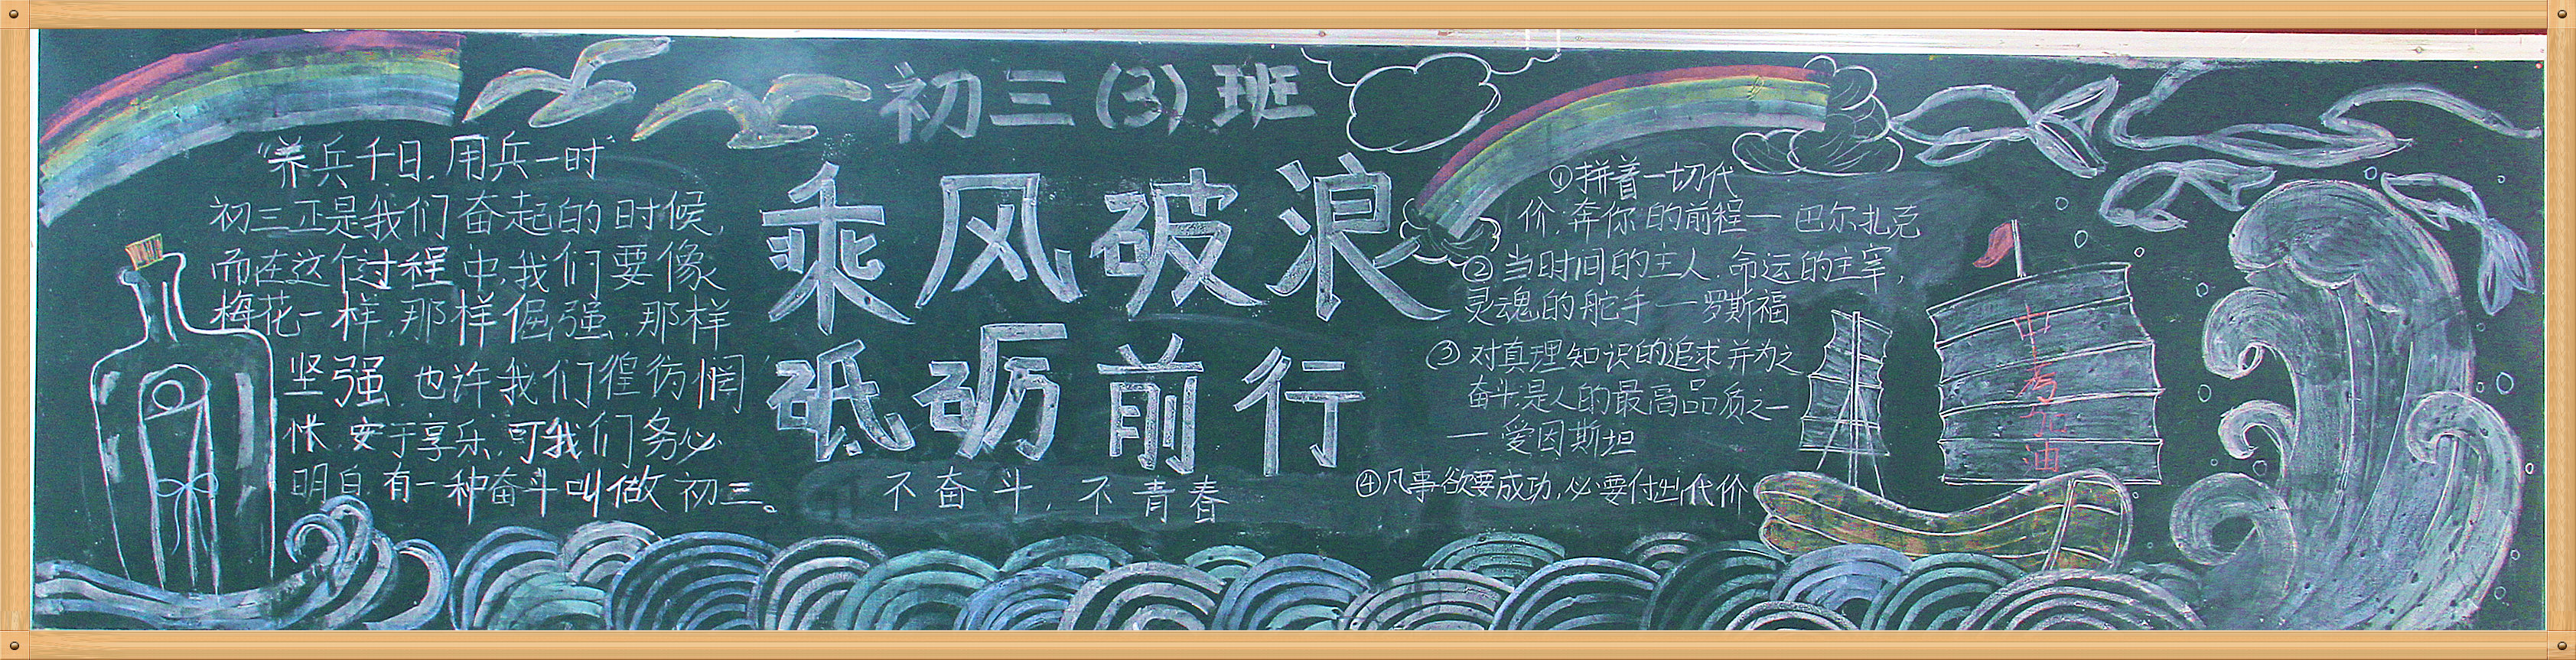 初三(3)班
乘风破浪
砥砺前行
不奋斗,不青春
"养兵千日,用兵一时"
初三正是我们奋起的时候,
而在这个过程中,我们要像
梅花一样,那样倔强,那样
坚强,也许我们徨彷惆
怅,安于享乐,可我们务必
明白,有一种奋斗叫做初三。
①拼着一切代
价,奔你的前程—巴尔扎克
②当时间的主人,命运的主宰,
灵魂的舵手—罗斯福
③对真理知识的追求并为之
奋斗,是人的最高品质之一
—爱因斯坦
④凡事欲要成功,必要付出代价
中考加油